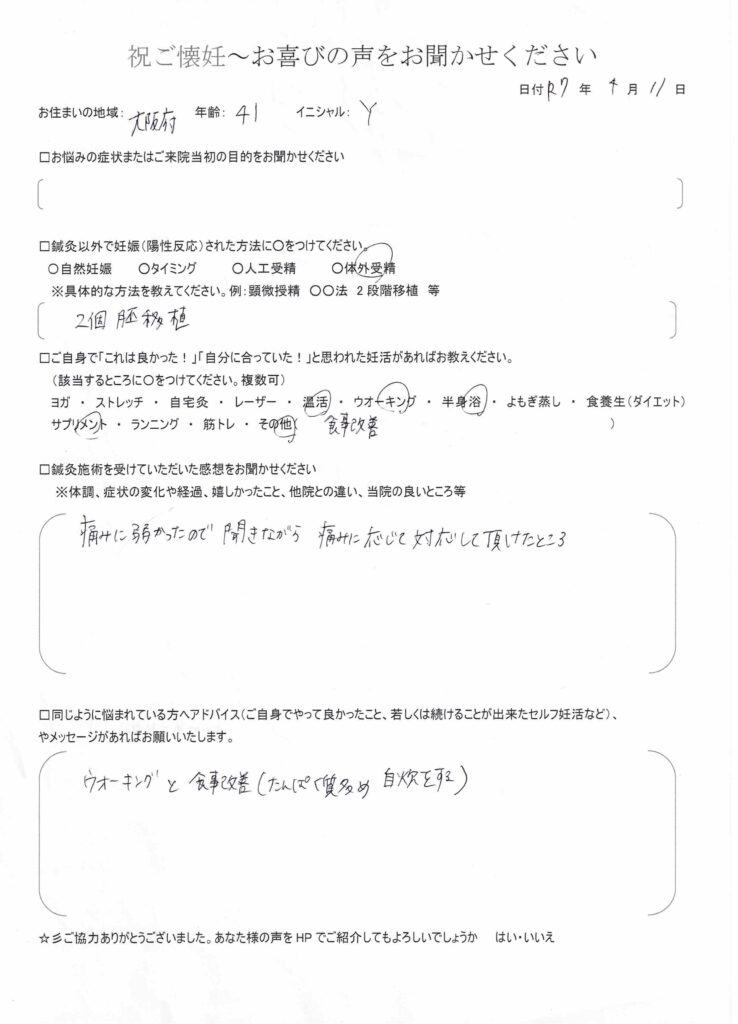 祝ご懐妊～お喜びの声をお聞かせください
日付 R7 年 4 月 11 日
お住まいの地域: 大阪府 年齢: 41 イニシャル: Y
□お悩みの症状またはご来院当初の目的をお聞かせください
□鍼灸以外で妊娠(陽性反応)された方法に〇をつけてください。
〇自然妊娠 〇タイミング 〇人工受精 〇体外受精
※具体的な方法を教えてください。例:顕微授精 〇〇法 2段階移植 等
2個 胚移植
□ご自身で「これは良かった!」「自分に合っていた!」と思われた妊活があればお教えください。
(該当するところに〇をつけてください。複数可)
ヨガ ・ ストレッチ ・ 自宅灸 ・ レーザー ・ 温活 ・ ウオーキング ・ 半身浴 ・ よもぎ蒸し ・ 食養生(ダイエット)
サプリメント ・ ランニング ・ 筋トレ ・ その他( 食事改善 )
□鍼灸施術を受けていただいた感想をお聞かせください
※体調、症状の変化や経過、嬉しかったこと、他院との違い、当院の良いところ等
痛みに弱かったので 聞きながら 痛みに応じて対応して頂けたところ
□同じように悩まれている方へアドバイス(ご自身でやって良かったこと、若しくは続けることが出来たセルフ妊活など)、
やメッセージがあればお願いいたします。
ウオーキングと 食事改善(たんぱく質多め 自炊をする)
☆彡ご協力ありがとうございました。あなた様の声をHPでご紹介してもよろしいでしょうか はい・いいえ